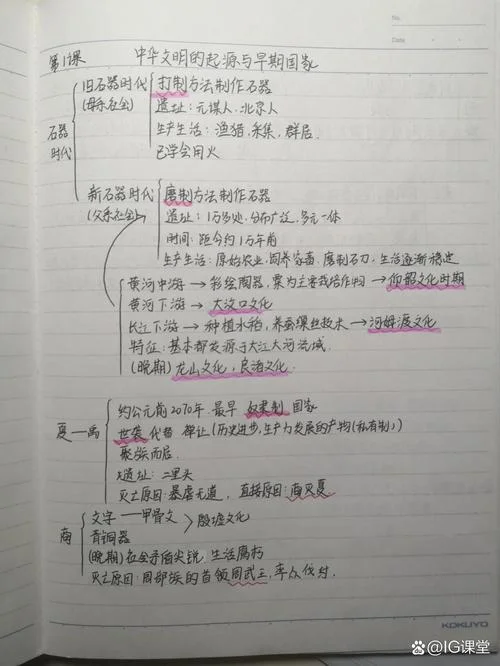 No.
Date
第1课 中华文明的起源与早期国家
石器时代
旧石器时代(母系社会)
打制方法制作石器
遗址：元谋人、北京人
生产生活：渔猎、采集、群居
已学会用火
新石器时代(父系社会)
磨制方法制作石器
遗址：1万多处，分布广泛，多元一体
时间：距今约1万年前
生产生活：原始农业，饲养家畜，磨制石刀，生活逐渐稳定
黄河中游→彩绘陶器，粟为主要栽培作物→仰韶文化时期
黄河下游→大汶口文化
长江下游→种植水稻，养蚕缫丝技术→河姆渡文化
特征：基本都发源于大江大河流域
(晚期)龙山文化，良渚文化
夏—禹
约公元前2070年 最早 奴隶制 国家
世袭代替禅让(历史进步，生产力发展的产物(私有制))
聚族而居
遗址：二里头
灭亡原因：暴虐无道，直接原因：商灭夏
商
文字—甲骨文
青铜器
>殷墟文化
(晚期)社会矛盾尖锐，生活腐朽
灭亡原因：周部族的首领周武王，率众伐纣.
KOKUYO
@IG课堂